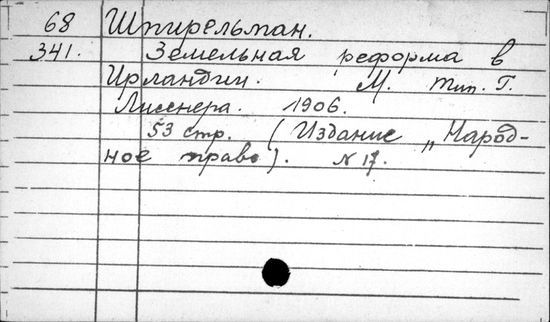 68 Шпирельман.
341. Земельная реформа в
Ирландии. М. Тип. Г.
Лисснера. 1906.
53 стр. (Издание „Народ-
ное право). N 17.